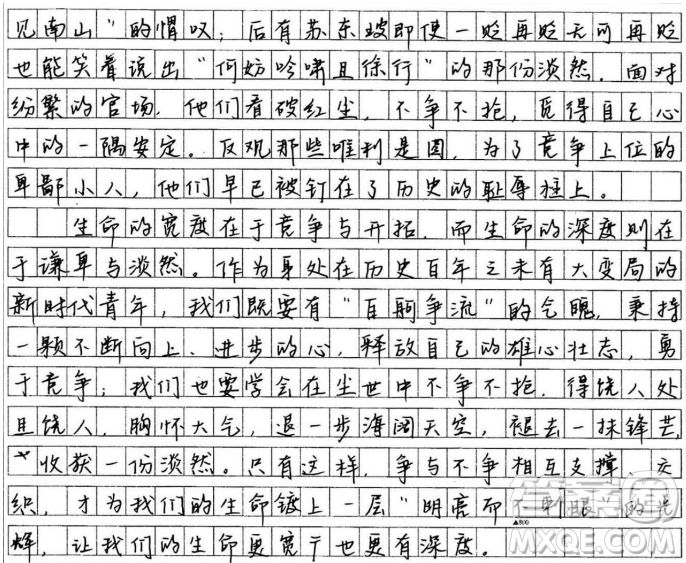 见南山"的慨叹；后有苏东坡即使一贬再贬无可再贬
也能笑着说出"何妨吟啸且徐行"的那份淡然，面对
纷繁的官场，他们看破红尘，不争不抢，觅得自己心
中的一隅安定。反观那些唯利是图，为了竞争上位的
卑鄙小人，他们早已被钉在了历史的耻辱柱上。
生命的宽度在于竞争与开拓，而生命的深度则在
于谦卑与淡然。作为身处在历史百年之未有大变局的
新时代青年，我们既要有"百舸争流"的气魄，秉持
一颗不断向上、进步的心，释放自己的雄心壮志，勇
于竞争；我们也要学会在尘世中不争不抢，得饶人处
且饶人，胸怀大气，退一步海阔天空，褪去一抹锋芒
收获一份淡然。只有这样，争与不争相互支撑、交
织，才为我们的生命镀上一层"明亮而不刺眼"的光
辉，让我们的生命更宽广也更有深度。
▲800
答案圈
MXQE.COM